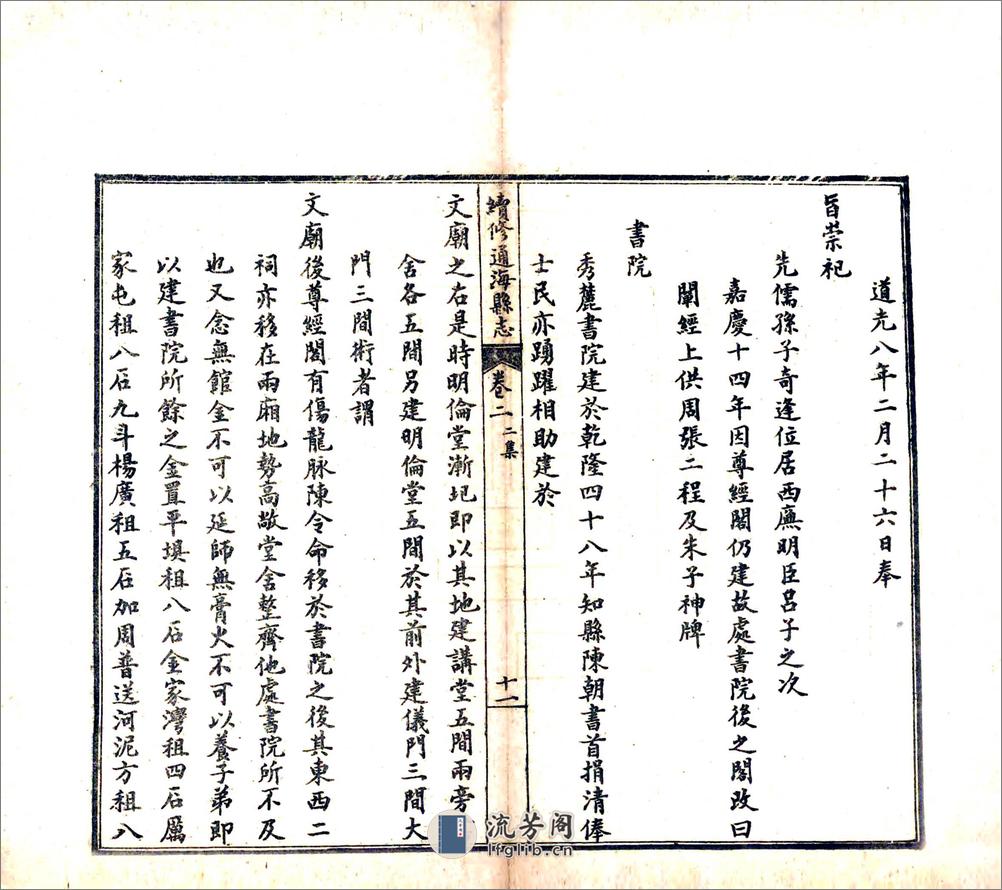 道光八年二月二十六日奉
旨崇祀
先儒孫子奇逢位居西廡明臣呂子之次
嘉慶十四年因尊經閣仍建故處書院後之閣改曰
闡經上供周張二程及朱子神牌
書院
秀麓書院建於乾隆四十八年知縣陳朝書首捐清俸
士民亦踴躍相助建於
續修通海縣志
卷二
二集
十一
文廟之右是時明倫堂漸圮即以其地建講堂五間兩旁
舍各五間另建明倫堂五間於其前外建儀門三間大
門三間術者謂
文廟後尊經閣有傷龍脉陳令命移於書院之後其東西二
祠亦移在兩廂地勢高敞堂舍整齊他處書院所不及
也又念無館金不可以延師無膏火不可以養子弟即
以建書院所餘之金置平填租八石金家灣租四石厲
家屯租八石九斗楊廣租五石加周普送河泥方租八
流芳阁
lfglib.cn